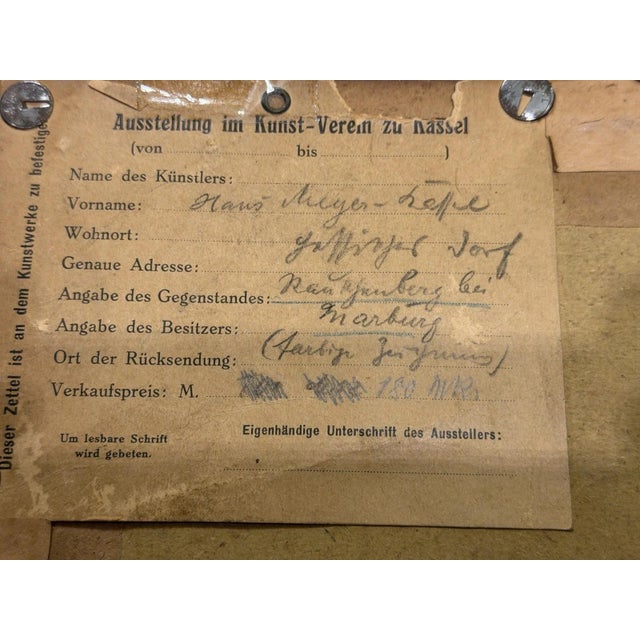 Ausstellung im Kunst-Verein zu Kassel
(von bis )
Name des Künstlers:
Vorname: Hans Meyer-Kassel
Wohnort: Hessisches Dorf
Genaue Adresse:
Angabe des Gegenstandes: Rauschenberg bei
Angabe des Besitzers: Marburg
Ort der Rücksendung: (farbige Zeichnung)
Verkaufspreis: M. 180 Mk.
Um lesbare Schrift
wird gebeten.
Eigenhändige Unterschrift des Ausstellers:
Dieser Zettel ist an dem Kunstwerke zu befestigen